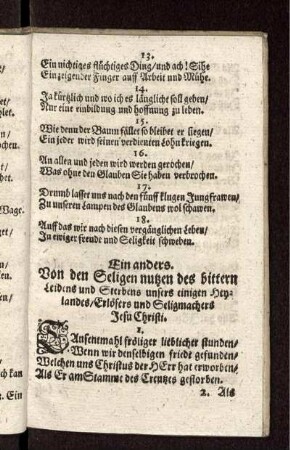 13.
Ein nichtiges flüchtiges Ding/und ach! Sihe
Ein zeigender Finger auff Arbeit und Mühe.
14.
Ja kürtzlich und wo ich es länglicht soll geben/
Nur eine einbildung und hoffnung zu leben.
15.
Wie denn der Baum fället so bleibet er liegen/
Ein jeder wird seinen verdienten Lohn kriegen.
16.
An allen und jeden wird werden gerochen/
Was ohne den Glauben Sie haben verbrochen.
17.
Drumb lasset uns nach den fünff klugen Jungfrawen/
Zu unseren Lampen des Glaubens wol schawen.
18.
Auff das wir nach diesen vergänglichen Leben/
In ewiger freude und Seligkeit schweben.
Ein anders.
Von den Seligen nutzen des bittern
Leidens und Sterbens unsers einigen Hey-
landes/Erlösers und Seligmachers
Jesu Christi.
1.
TAusentmahl fröliger lieblicher stunden/
Wenn wir denselbigen friede gefunden/
Welchen uns Christus der HErr hat erworben/
Als Er am Stamme des Creutzes gestorben.
2. Als